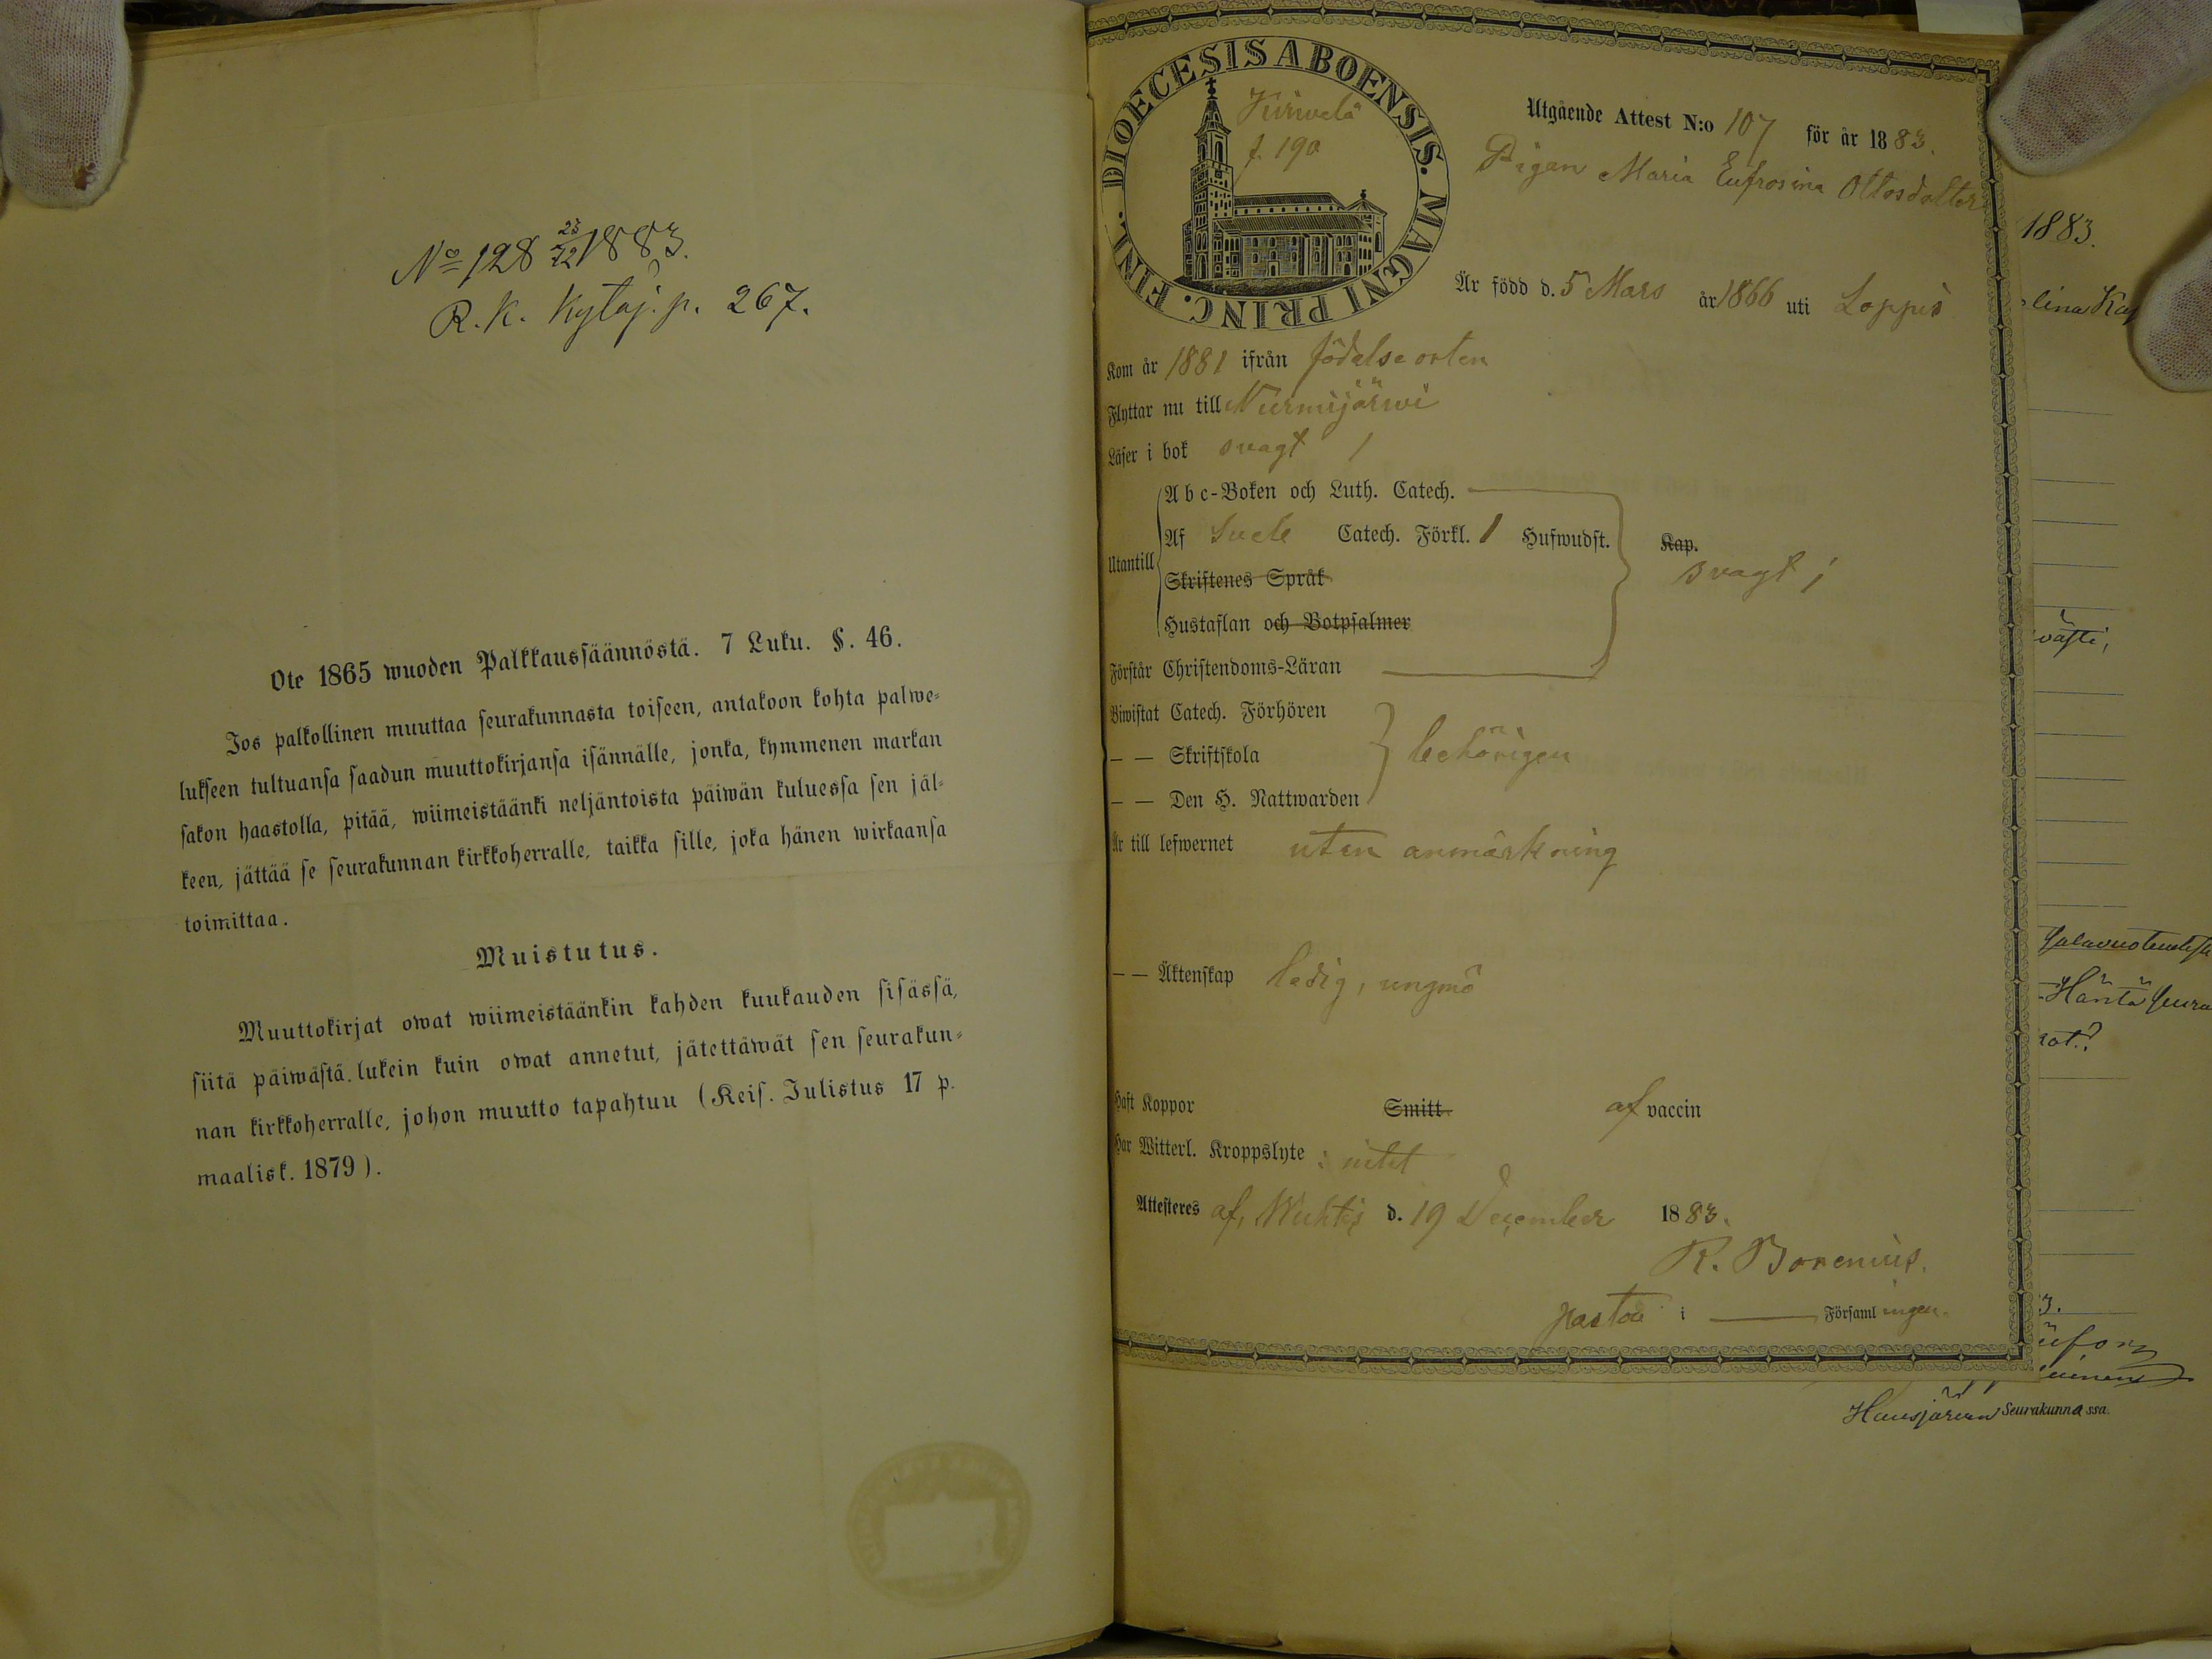 No 128 23/12 1883.
R. K. Kytäj. p. 267.
Ote 1865 wuoden Palkkaussäännöstä. 7 Luku. §. 46.
Jos palkollinen muuttaa seurakunnasta toiseen, antakoon kohta palwe-
lukseen tultuansa saadun muuttokirjansa isännälle, jonka, kymmenen markan
sakon haastolla, pitää, wiimeistäänki neljäntoista päiwän kuluessa sen jäl-
keen, jättää se seurakunnan kirkkoherralle, taikka sille, joka hänen wirkaansa
toimittaa.
Muistutus.
Muuttokirjat owat wiimeistäänkin kahden kuukauden sisässä,
siitä päiwästä lukein kuin owat annetut, jätettäwät sen seurakun-
nan kirkkoherralle, johon muutto tapahtuu (Keis. Julistus 17 p.
maalisk. 1879).
DIOECESIS ABOENSIS. MAGNI PRINC. FINL.
f. 190
Utgående Attest N:o 107 för år 1883.
Pigan Maria Eufrosina Ottosdotter
Är född d. 5 Mars år 1866 uti Loppis
Kom år 1881 ifrån födelseorten
Flyttar nu till Nurmijärwi
Läser i bok svagt
Utantill
Abc-Boken och Luth. Catech.
Af Catech. Förkl. 1 Hufwudst. Kap.
svagt;
Skriftenes Språk
Hustaflan och Botpsalmer
Förstår Christendoms-Läran
Biwistat Catech. Förhören
— — Skriftskola behörigen
— — Den H. Nattwarden
Är till lefwernet utan anmärkning
— — Äktenskap ledig, ungmö
Haft Koppor Smitt. af vaccin
Har Witterl. Kroppslyte : intet
Attesteres af, Wichtis d. 19 December 1883.
R. Borenius.
pastor i Församlingen.
1883.
lina
Häntä
Hausjärven Seurakunnassa.